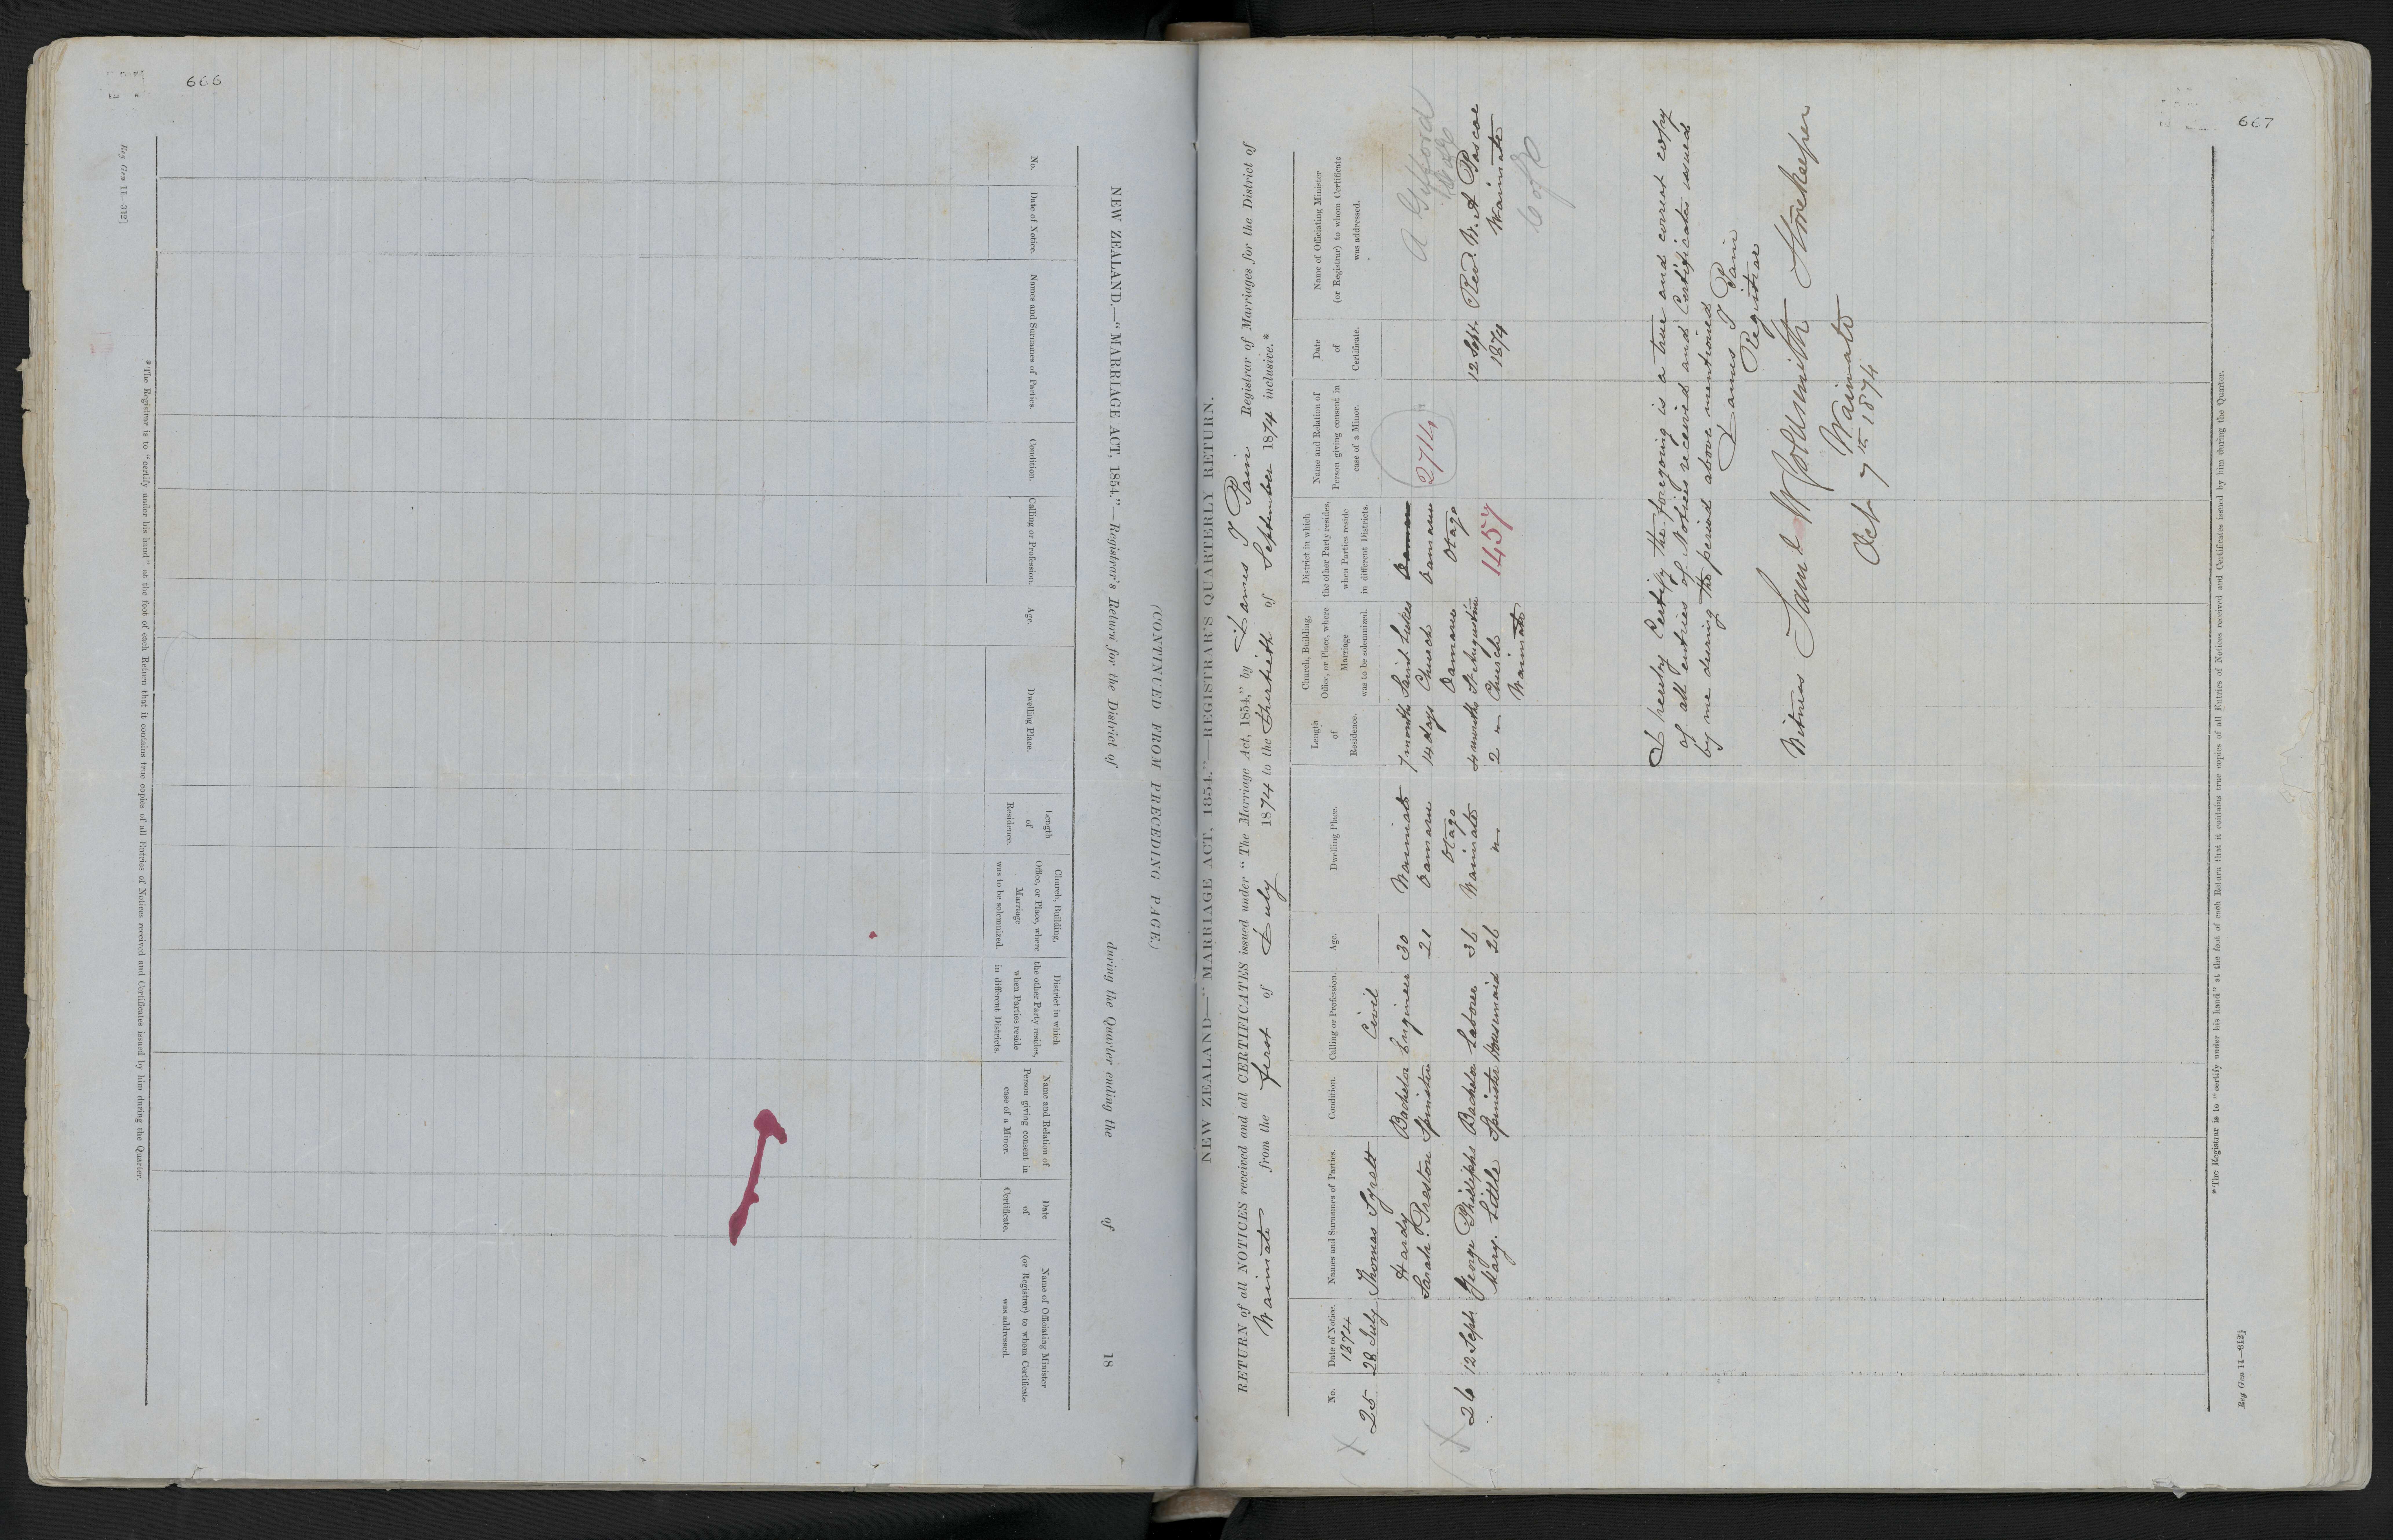 666
Reg Gen 11—312]
NEW ZEALAND.—"MARRIAGE ACT, 1854."—Registrar's Return for the District of during the Quarter ending the of 18
(CONTINUED FROM PRECEDING PAGE.)
No.
Date of Notice.
Names and Surnames of Parties.
Condition.
Calling or Profession.
Age.
Dwelling Place.
Length
of
Residence.
Church, Building,
Office, or Place, where
Marriage
was to be solemnized.
District in which
the other Party resides,
when Parties reside
in different Districts.
Name and Relation of
Person giving consent in
case of a Minor.
Date
of
Certificate.
Name of Officiating Minister
(or Registrar) to whom Certificate
was addressed.
*The Registrar is to "certify under his hand" at the foot of each Return that it contains true copies of all Entries of Notices received and Certificates issued by him during the Quarter.
667
NEW ZEALAND—"MARRIAGE ACT, 1854."—REGISTRAR'S QUARTERLY RETURN.
RETURN of all NOTICES received and all CERTIFICATES issued under "The Marriage Act, 1854," by James I Pain Registrar of Marriages for the District of
Waimate from the first of July 1874 to the thirtieth of September 1874 inclusive.*
No.
Date of Notice.
Names and Surnames of Parties.
Condition.
Calling or Profession.
Age.
Dwelling Place.
Length
of
Residence.
Church, Building,
Office, or Place, where
Marriage
was to be solemnized.
District in which
the other Party resides,
when Parties reside
in different Districts.
Name and Relation of
Person giving consent in
case of a Minor.
Date
of
Certificate.
Name of Officiating Minister
(or Registrar) to whom Certificate
was addressed.
1874
25 28 July Thomas Syrett Civil
Hardy Bachelor Engineer 30 Waimate 7 months Saint Lukes A Gifford
Sarah Preston Spinster 21 Oamaru 14 days Church Oamaru 2714
Otago Oamaru Otago
26 12 Sept George Philipps Bachelor Laborer 36 Waimate 4 months St Augustine 12 Sept. Rev. W. A Pascoe
Mary. Little Spinster Housemaid 26 " 2 " Church 1457 1874 Waimate
Waimate C of E
I hereby Certify the foregoing is a true and correct copy
of all entries of Notices received and Certificates issued
by me during the period above mentioned
James I Pain
Registrar
Witness Saml W Goldsmith Storekeeper
Waimate
Oct 7th 1874
*The Registrar is to "certify under his hand" at the foot of each Return that it contains true copies of all Entries of Notices received and Certificates issued by him during the Quarter.
Reg Gen 11—312]